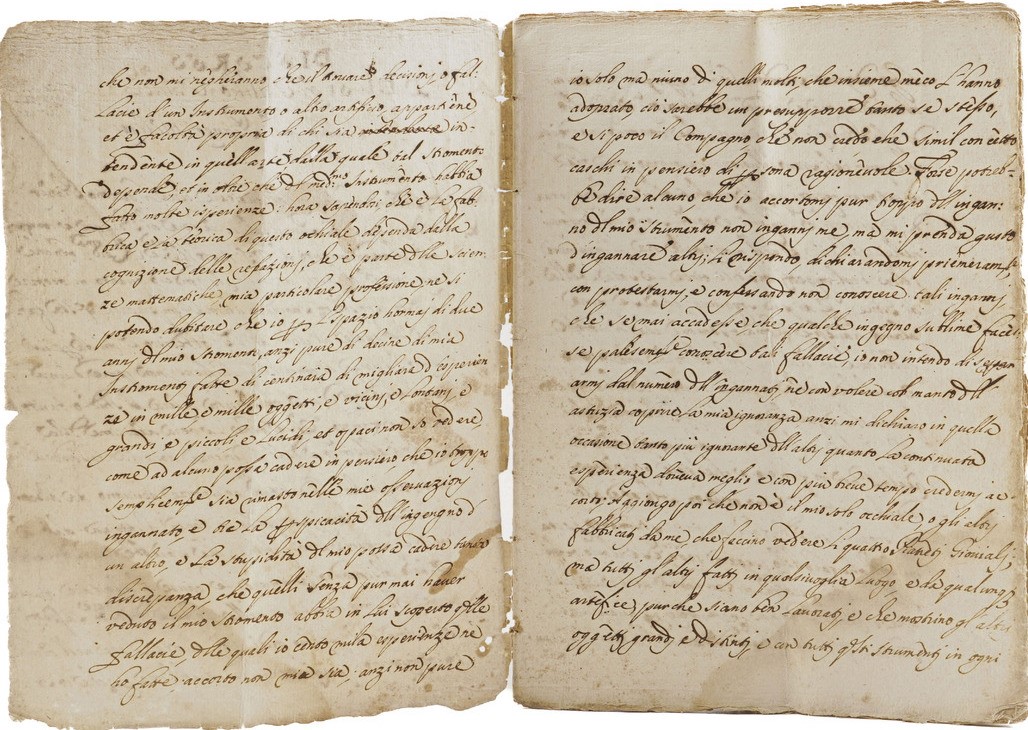 che non mi negheranno che il trovare decisioni, o fal:
lacie d'un Instrumento o altro artifitio appartiene
et è facoltà propria di chi sia in:
tendente in quell'arte dalla quale tal stromento
depende, et in oltre che del med.mo Instrumento habbia
fatto molte isperienze: hora sapendosi che e la fab:
brica e la teorica di questo occhiale depende dalla
cognizione delle refazioni, che è parte delle scien:
ze mattematiche, mia particolare professione ne si
potendo dubitare che io p lo spazio hormai di due
anni del mio stromento, anzi pure di decine di mia
Instromenti fatte di centinara di migliara d'esperien
ze in mille, e mille oggetti, e vicini, e lontani, e
grandi, e piccoli e lucidi, et opaci non so vedere,
come ad alcuno possa cadere in pensiero che io troppo
semplicem.te sia rimasto nelle mie osservazioni
ingannato, e che la pspicacità dell'ingegno d
un altro, e la stupidità del mio possa cadere tanta
discrepanza che quelli senza pur mai haver
veduto il mio stromento abbia in lui scoperto delle
fallacie, delle quali io cento mila esperienze ne
ho fatte accorto non mia sia; anzi non pure
io solo ma niuno di quelli molti, che insieme meco l'hanno
adoprato, ciò sarebbe un presupporre tanto se stesso,
e si poco il Compagno che non credo che simil concetto
caschi in pensiero di psona ragionevole. Forse potreb=
be dire alcuno, che io accortomi pur troppo dell ingan:
no del mio strumento non inganni me ma mi prenda gusto
d'ingannare altri; li rispondo, dichiarandomi prieneram.te
con protestarmi, e confessando non conoscere tali inganni
che se mai accadesse che qualche ingegno sublime faces:
se palesem.te conoscere tali fallacie, io non intendo di
armi dal numero dell'ingannati, ne con volere col manto dell
astuzia coprire la mia ignoranza anzi mi dichiaro in quella
occasione tanto più ignorante dell altri quanto la continuata
esperienza doveva meglio, e con più breve tempo rendermi ac:
corto, sogiongo poi che non è il mio solo occhiale, o gli altri
fabbricati da me che faccino vedere li quattro Pianeti Gioviali,
ma tutti gl'altri fatti in qualsivoglia luogo, e da qualunq
artefice, purche siano ben lavorati, e che mostrino gl'altri
oggetti grandi, e distinti, e con tutti q.sti strumenti in ogni